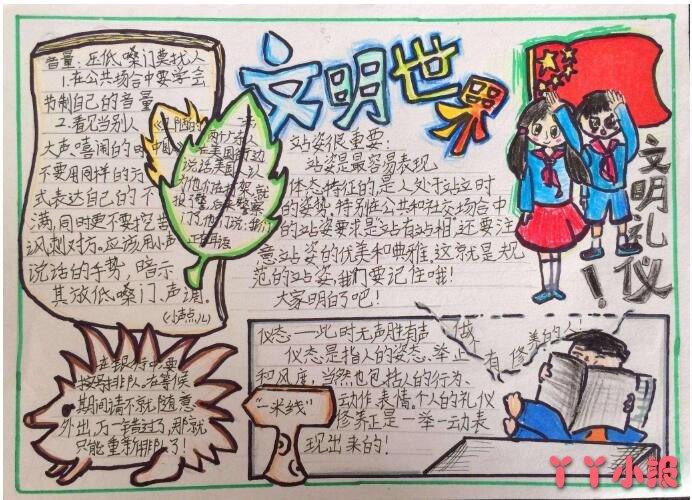 文明世界
音量:压低嗓门莫找人
1.在公共场合中要学会
节制自己的音量
2.看见当别人
大声喧闹的时
不要用同样的方
式表达自己的不
满,同时更不要挖苦
讽刺对方。应该用小声
说话的手势,暗示
其放低嗓门、声调。
(小声点儿)
站姿很重要:
站姿是最容易表现
体态特征的是人处于站立时
的姿势。特别在公共和社交场合中
的站姿要求是"站有站相",还要注
意站姿的优美和典雅。这就是规
范的站姿,我们要记住哦!
大家明白了吧!
文明礼仪!
在银行中要
按号排队。在等候
期间请不就随意
外出,万一错过了,那就
只能重新排队了!
"一米线"
仪态——此时无声胜有声
仪态是指人的姿态、举止
和风度,当然也包括人的行为、
动作表情。个人的礼仪
修养正是一举一动表
现出来的!
做
有修养的人!
丫丫小报